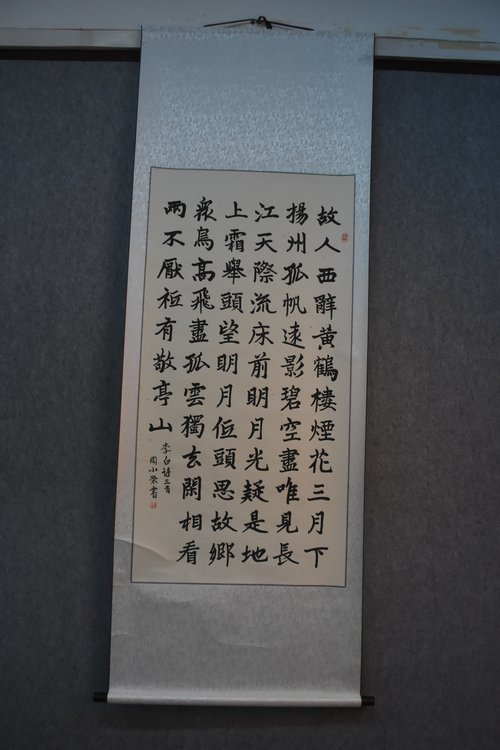 故人西辭黃鶴樓煙花三月下
揚州孤帆遠影碧空盡唯見長
江天際流床前明月光疑是地
上霜舉頭望明月低頭思故鄉
衆鳥高飛盡孤雲獨去閑相看
兩不厭祗有敬亭山
李白詩三首
周小榮書